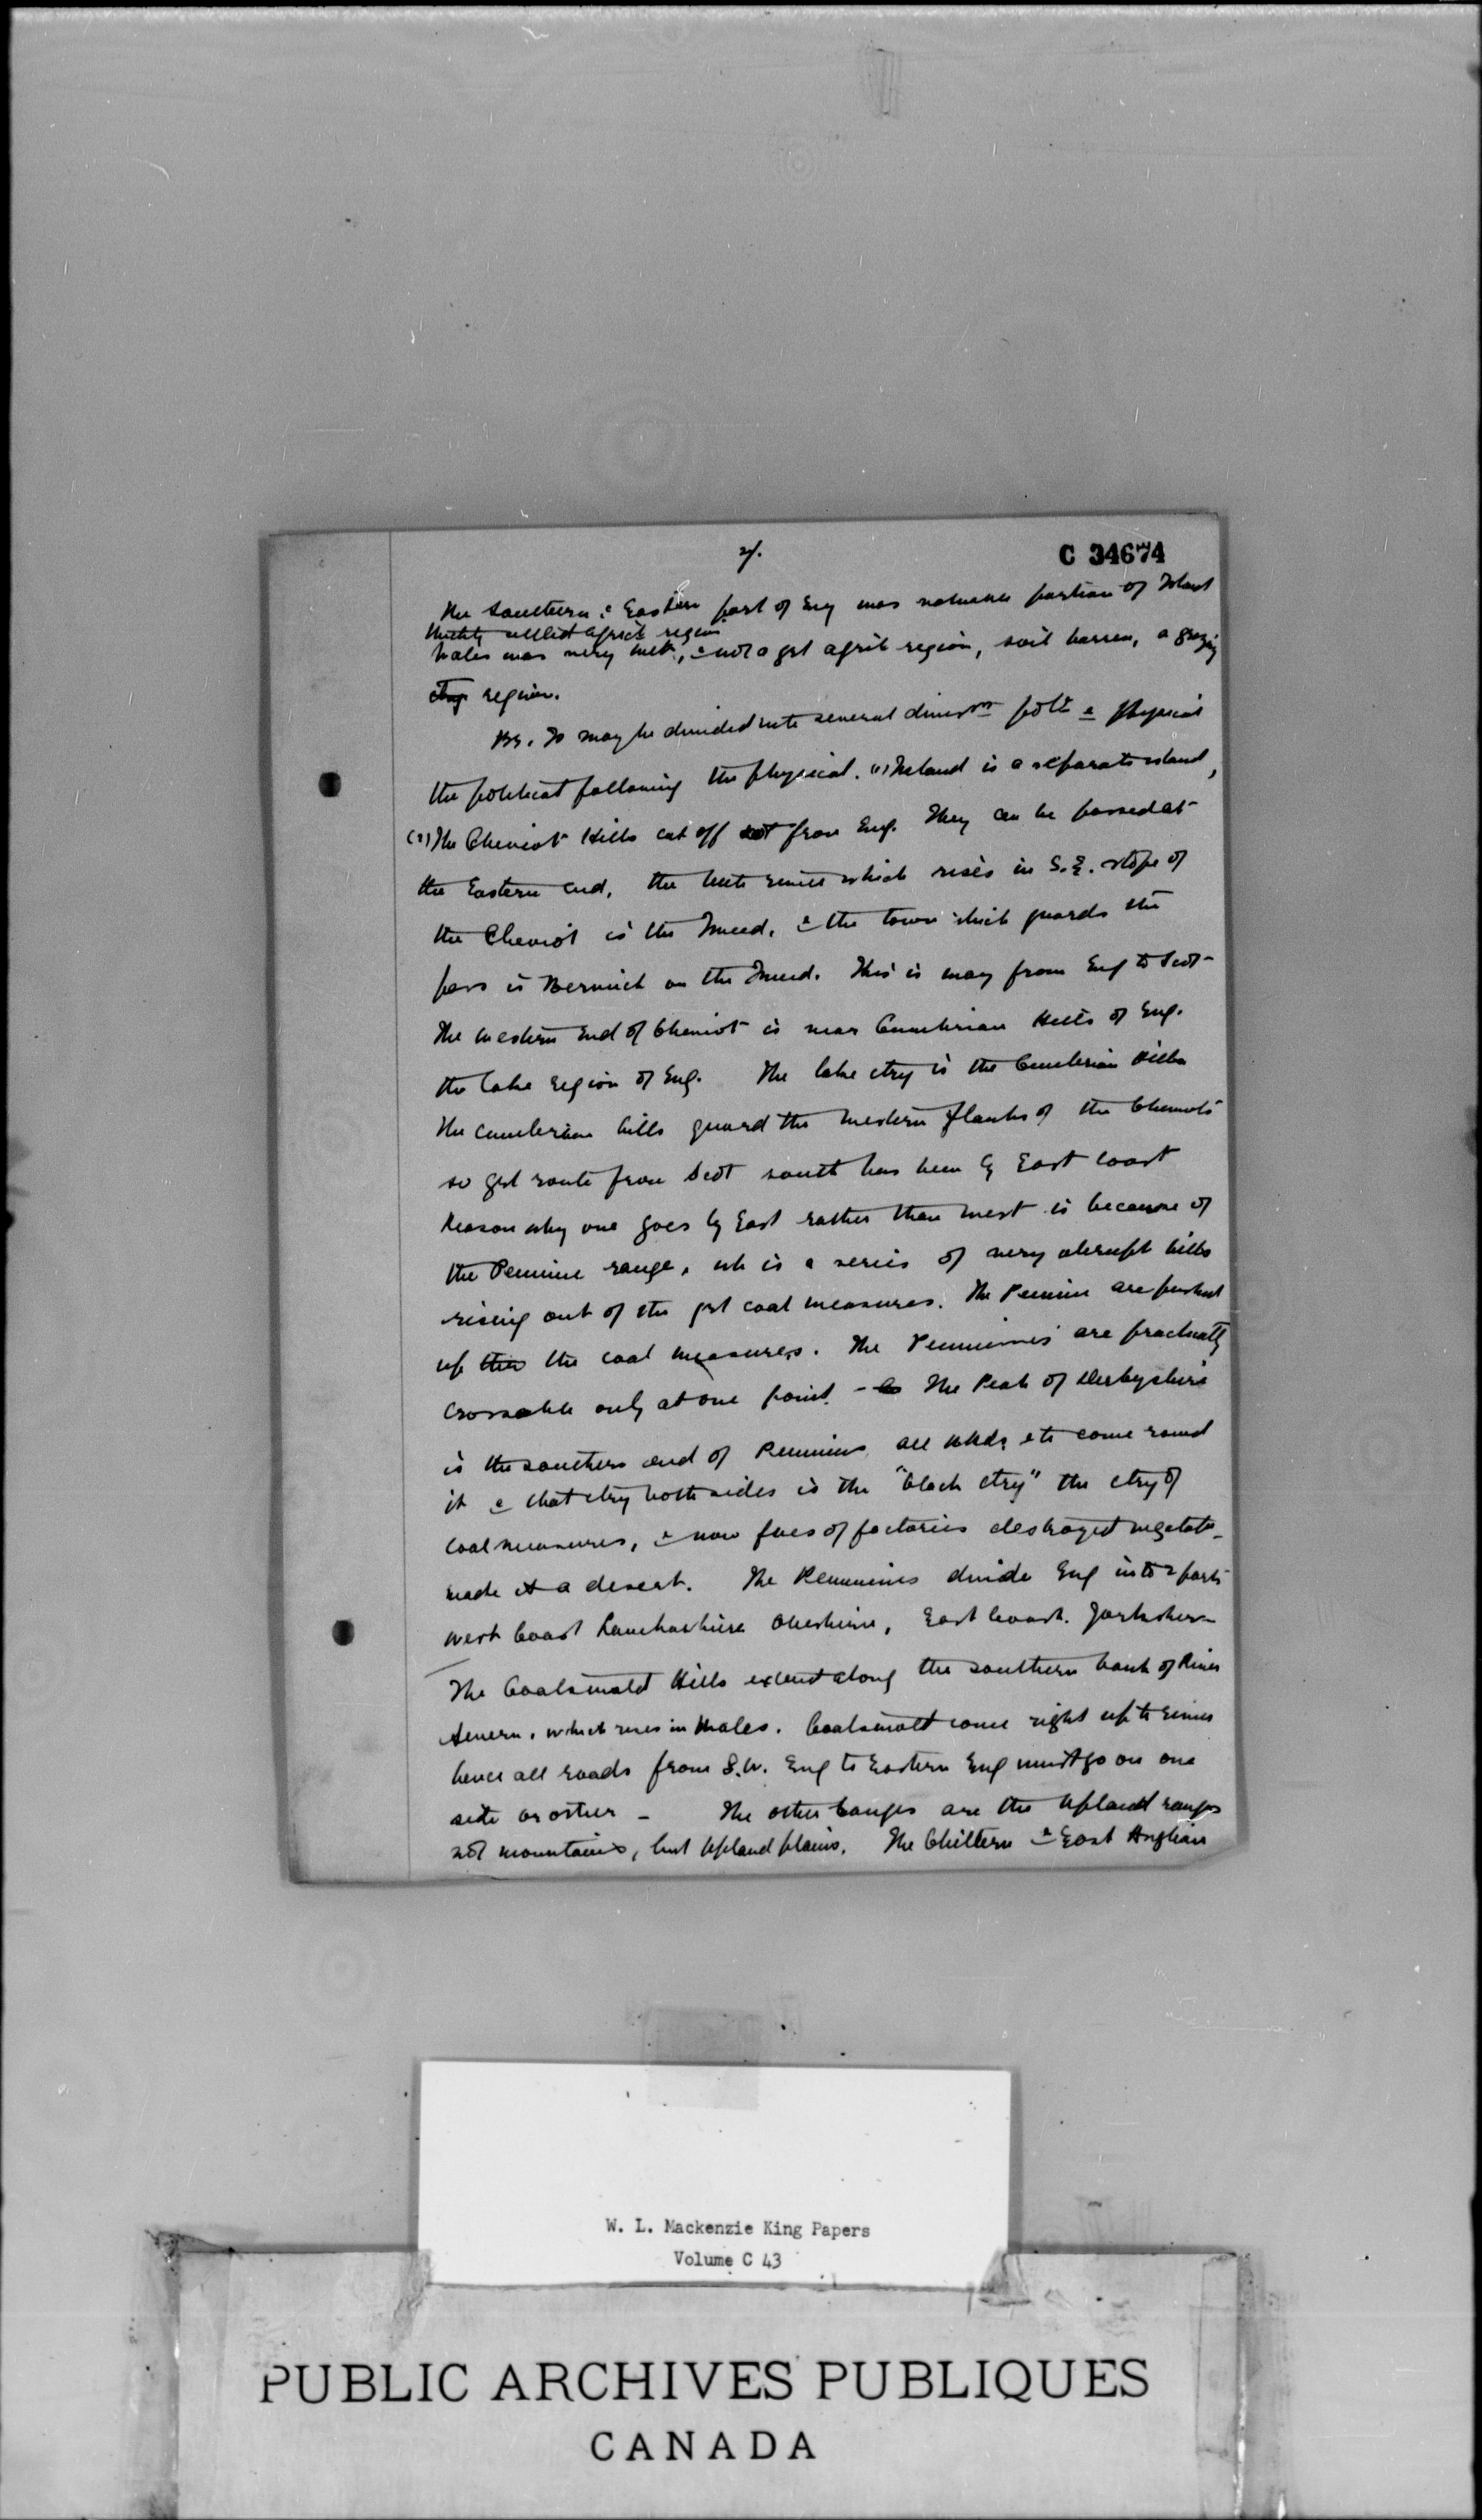 2/.
C 34674
The Southern & Eastern part of Eng was valuable portion of Island
thickly settled agricl region
Wales was very wet, & not a grt agricl region, soil barren, a grazing
region.
Br. Is may be divided into several divisns polit & physical
the political following the physical. (1) Ireland is a separate island,
(2) The Cheviot Hills cut off Scot from Eng. They can be passed at
the Eastern end, the little river which rises in S.E. slope of
the Cheviot is the Tweed, & the town which guards the
pass is Berwick on the Tweed. This is way from Eng to Scot-
The western end of Cheviot is near Cumbrian Hills of Eng.
the lake region of Eng. The lake ctry is the Cumbrian Hills
The Cumbrian hills guard the western flanks of the Cheviots
so grt route from Scot south has been by East coast
Reason why one goes by East rather than west is because of
the Pennine range, wh is a series of very abrupt hills
rising out of the grt coal measures. The Pennine are pushed
up thro the coal measures. The Pennines are practically
crossable only at one point. - The Peak of Derbyshire
is the southern end of Pennines all etc come round
it & that ctry both sides is the "black ctry" the ctry of
coal measures, & now of factories destroyed vegetatn
made it a desert. The Pennines divide Eng into 2 parts
West Coast Lancashire Cheshire, East Coast. Yorkshire -
The Coalswold Hills extend along the southern bank of River
Severn, which rises in Wales. Coalswold come right up to river
hence all roads from S.W. Eng to Eastern Eng must go on one
side or other - The other ranges are the Upland ranges
not mountains, but Upland plains. The Chiltern & East Anglian
W. L. Mackenzie King Papers
Volume C 43
PUBLIC ARCHIVES PUBLIQUES
CANADA